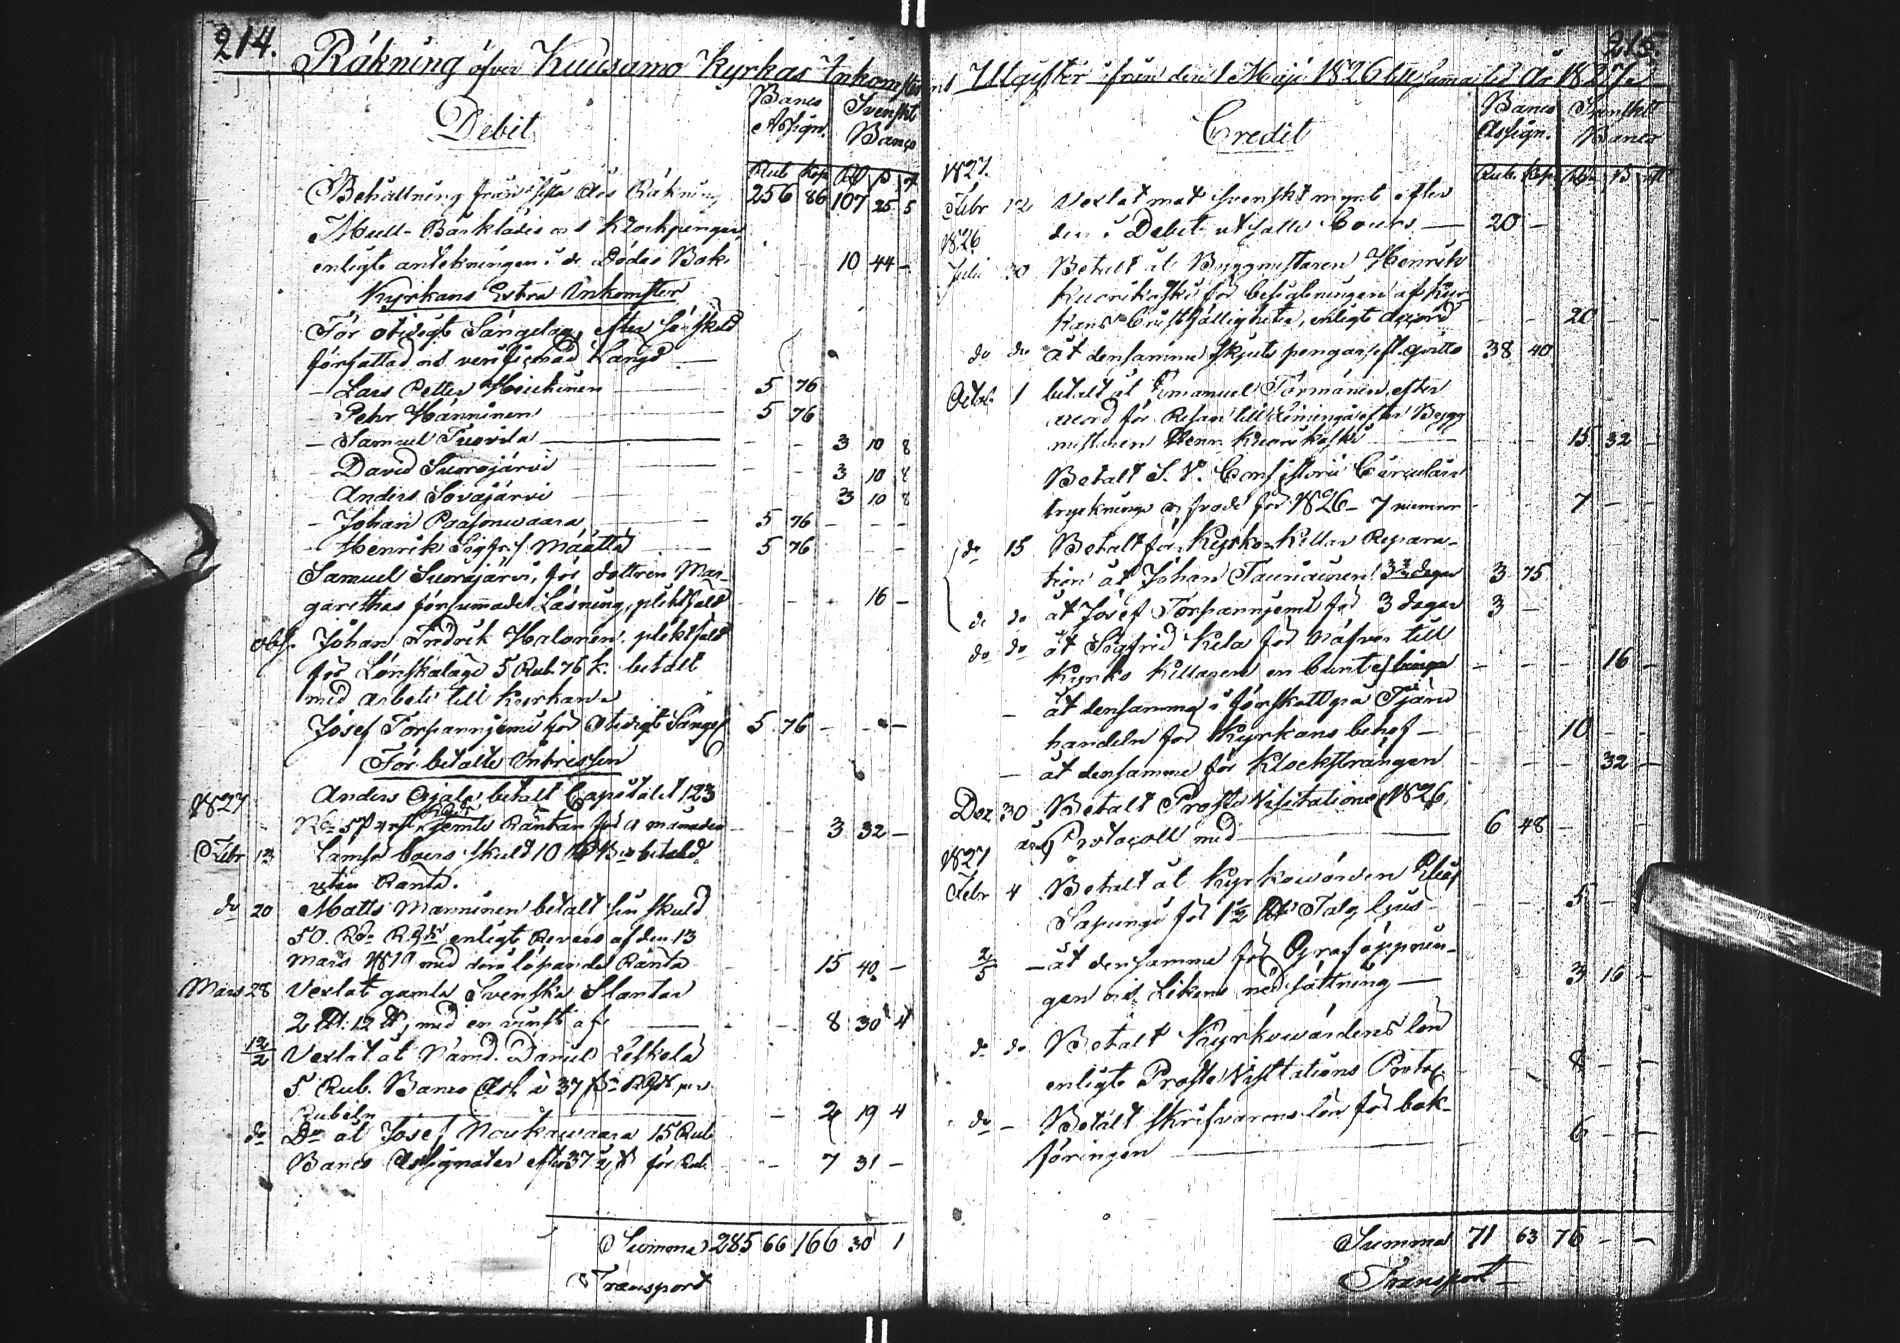 214.
Räkning öfver Kuusamo Kyrkas Inkomster
Debit
Banco Assign. Svenskt Banco
Rub Kop
Behållning från sista års Räkning 256 86 107 25 5
Mull- Bårklädes och Klockpengar
enligt antekningen i de Dödas Bok. 10 44 -
Kyrkans Extra Inkomster
För otidigt Sängelag, efter särskild
författad och verificerad Längd
- Lars Petter Heikkinen 5 76
- Pehr Hänninen 5 76
- Samuel Tuovila 3 10 8
David Suorajärvi 3 10 8
Anders Sovajärvi 3 10 8
- Johan Paasonwaara 5 76 - - -
- Henrik Sigfr:s Määttä 5 76 - - -
Samuel Suorajärvi, för dottren Mar-
garethas försummade Läsning, pliktfäld - - - 16 -
obs. Johan Fredrik Halonen pliktfäld
för Lönskaläge 5 Rub. 76 k. betalt
med arbete till kyrkan
Josef Torfvannjemi för Otidigt Sängel. 5 76 - - -
För betalte Intressen
1827 Anders Ojala betalt Capitalet 123
jemte Räntan för 9 månader - - 3 32 -
Febr 13 skuld 10 betald
utan Ränta.
do 20 Matts Manninen betalt sin skuld
50. Rdr Rgds enligt Revers af den 13
Mars 1819 med dess löpande Ränta - - 15 40 -
Mars 28 Vexlat gamla Svenska Slantar
2 12 , med en vinst af 8 30 4
12/2 Vexlat åt Nämd. Daniel Leskelä
5 Rub. Banco Ass. à 37 Rgds per
Rubeln - - 2 19 4
do Do åt Josef Noukawaara 15 Rub
Banco Assignater efter 37 för Rub. - - 7 31 -
Summa 285 66 166 30 1
Transport
215.
och Utgifter ifrån den 1 Maji 1826 till samma tid År 1827.
Credit
Banco Assign. Svenskt Banco
Rub. Kop.
1827.
Febr 12 Vexlat mot Svenskt mynt efter
den i Debet utsatte Cours - 20 -
1826
Julii 30 Betalt åt Byggmästaren Henrik
Kuorikoski för besigtningen af Kyr-
kans Bristfälligheter, enligt Accord - - 20 - -
do do åt densamme skjuts pengar eft. qvitto 38 40
Octob. 1 betalt åt Emanuel Törmänen efter
accord för Resan till Limingo efter Bygg
mästaren Henr. Kuorikoski 15 32 -
Betalt S. V. Consistorii Circulair
trycknings och för 1826 - 7 nummer - 7 - -
do 15 Betalt för Kyrko-Källar Repara-
tion åt Johan Tauriainen 3 3/4 dagar 3 75
do do åt Josef Torfvannjemi för 3 dagar 3 -
do do åt Sigfrid Kela för Näfver till
Kyrko Källaren en bunt - - - 16 -
- åt densamme i förskott på Tjära
handeln för Kyrkans behof - - - 10 - -
- åt densamme för Klocksträngen - - - 32 -
Dec 30 Betalt Prosts Visitations 1826
års Protocoll med 6 48 -
1827
Febr 4 Betalt åt Kyrkowärden Elias
Sapungi för 1 1/2 Talg ljus - 5 - -
2/5 - åt densamme för Graföppnin-
gen och Likens nedsättning - 3 16 -
do do Betalt Kyrkowärdens lön
enligt Prosts Visitations Protoc. - - 8 - -
do - Betalt skrifvarens lön för bok-
föringen 6 - -
Summa 71 63 76 - -
Transport